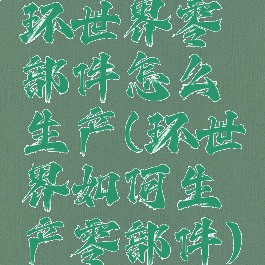 环世界零
部件怎么
生产(环世
界如何生
产零部件)